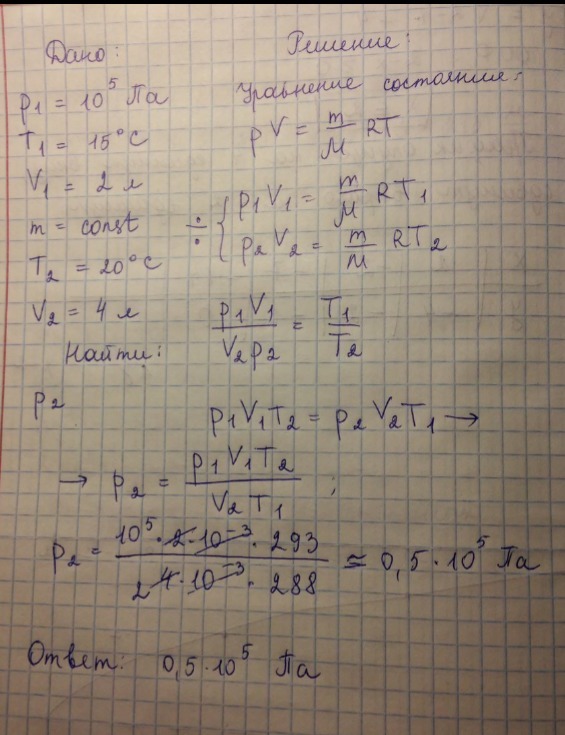 Дано:
p₁ = 10⁵ Па
T₁ = 15°C
V₁ = 2 л
m = const
T₂ = 20°C
V₂ = 4 л
Найти:
p₂
Решение:
Уравнение состояния:
pV = m/M RT
÷ { p₁V₁ = m/M RT₁
p₂V₂ = m/M RT₂
p₁V₁/V₂p₂ = T₁/T₂
p₁V₁T₂ = p₂V₂T₁ →
→ p₂ = p₁V₁T₂/V₂T₁ ;
p₂ = 10⁵ · 2 · 10⁻³ · 293 / 2 4 · 10⁻³ · 288 ≃ 0,5 · 10⁵ Па
Ответ: 0,5 · 10⁵ Па